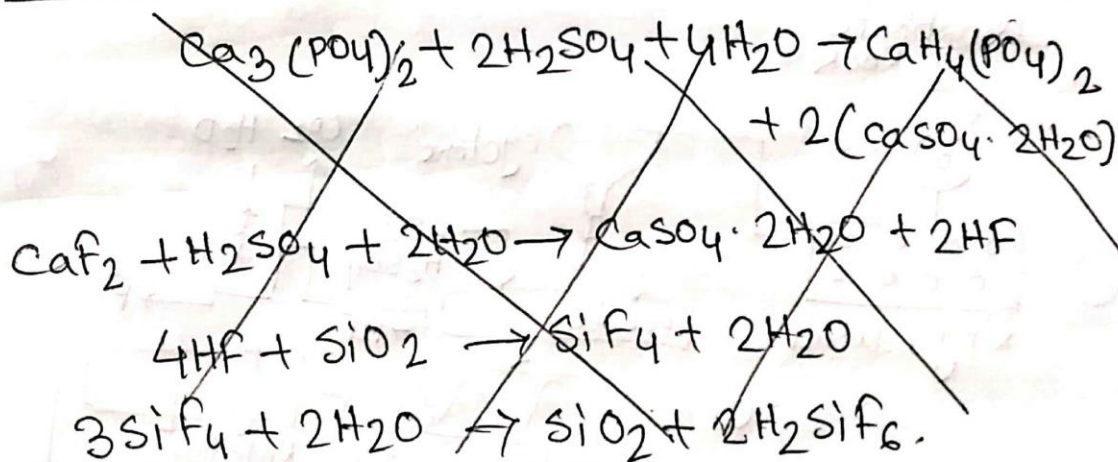 Ca3(PO4)2 + 2H2SO4 + 4H2O → CaH4(PO4)2
+ 2(CaSO4· 2H2O)
CaF2 + H2SO4 + 2H2O → CaSO4· 2H2O + 2HF
4HF + SiO2 → SiF4 + 2H2O
3SiF4 + 2H2O → SiO2 + 2H2SiF6.